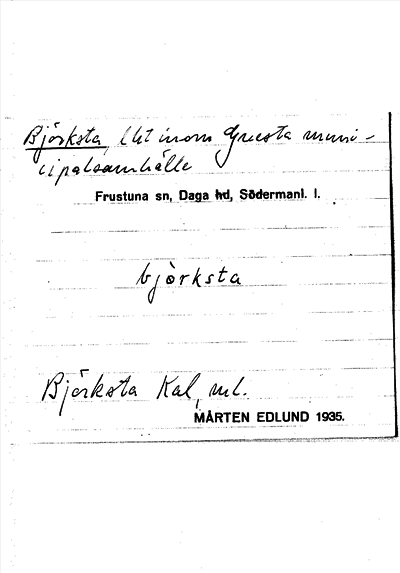 Björksta, lht inom Gnesta muni-
cipalsamhälle
Frustuna sn, Daga hd, Södermanl. l.
bjòrksta
Björksta Kal, ml.
MÅRTEN EDLUND 1935.